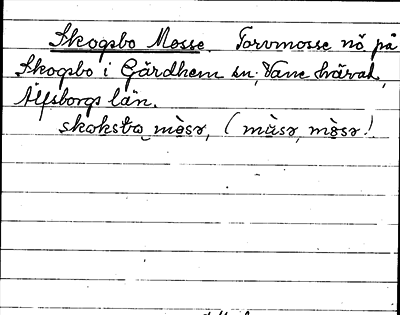 Skogsbo Mosse. Torvmosse nö på
Skogsbo i Gärdhem sn, Väne härad,
Älfsborgs län.
skoksbo mòsə, (mùsə, mòsə!)